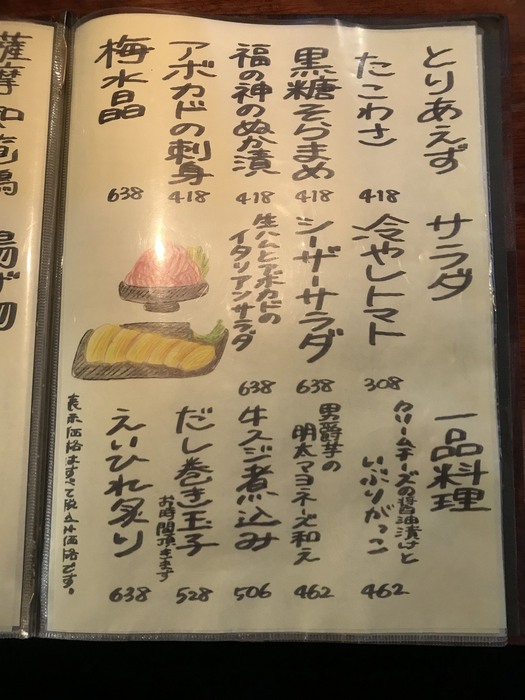 とりあえず
たこわさ
418
黒糖そらまめ
418
福の神のぬか漬
418
アボカドの刺身
418
梅水晶
638
サラダ
冷やしトマト
308
シーザーサラダ
638
生ハムとアボカドの
イタリアンサラダ
638
一品料理
クリームチーズの醤油漬けと
いぶりがっこ
462
男爵芋の
明太マヨネーズ和え
462
牛スジ煮込み
506
だし巻き玉子
お時間頂きます
528
えいひれ炙り
638
表示価格はすべて税込価格です。
揚げ物